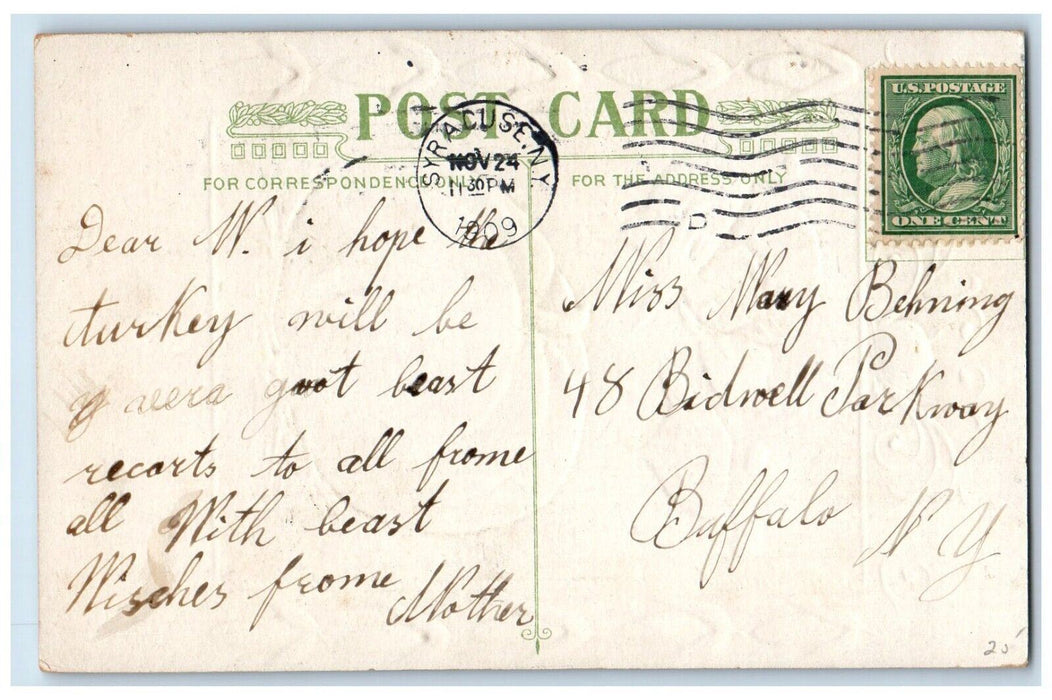 POST CARD
FOR CORRESPONDENCE ONLY
FOR THE ADDRESS ONLY
SYRACUSE, N.Y.
NOV 24
11 30 PM
1909
D
U.S. POSTAGE
ONE CENT
Dear W. i hope the
turkey will be
avera goot beast
recorts to all frome
all With beast
Wisches frome
Mother
Miss Mary Behning
48 Bidwell Parkway
Buffalo
N Y
20